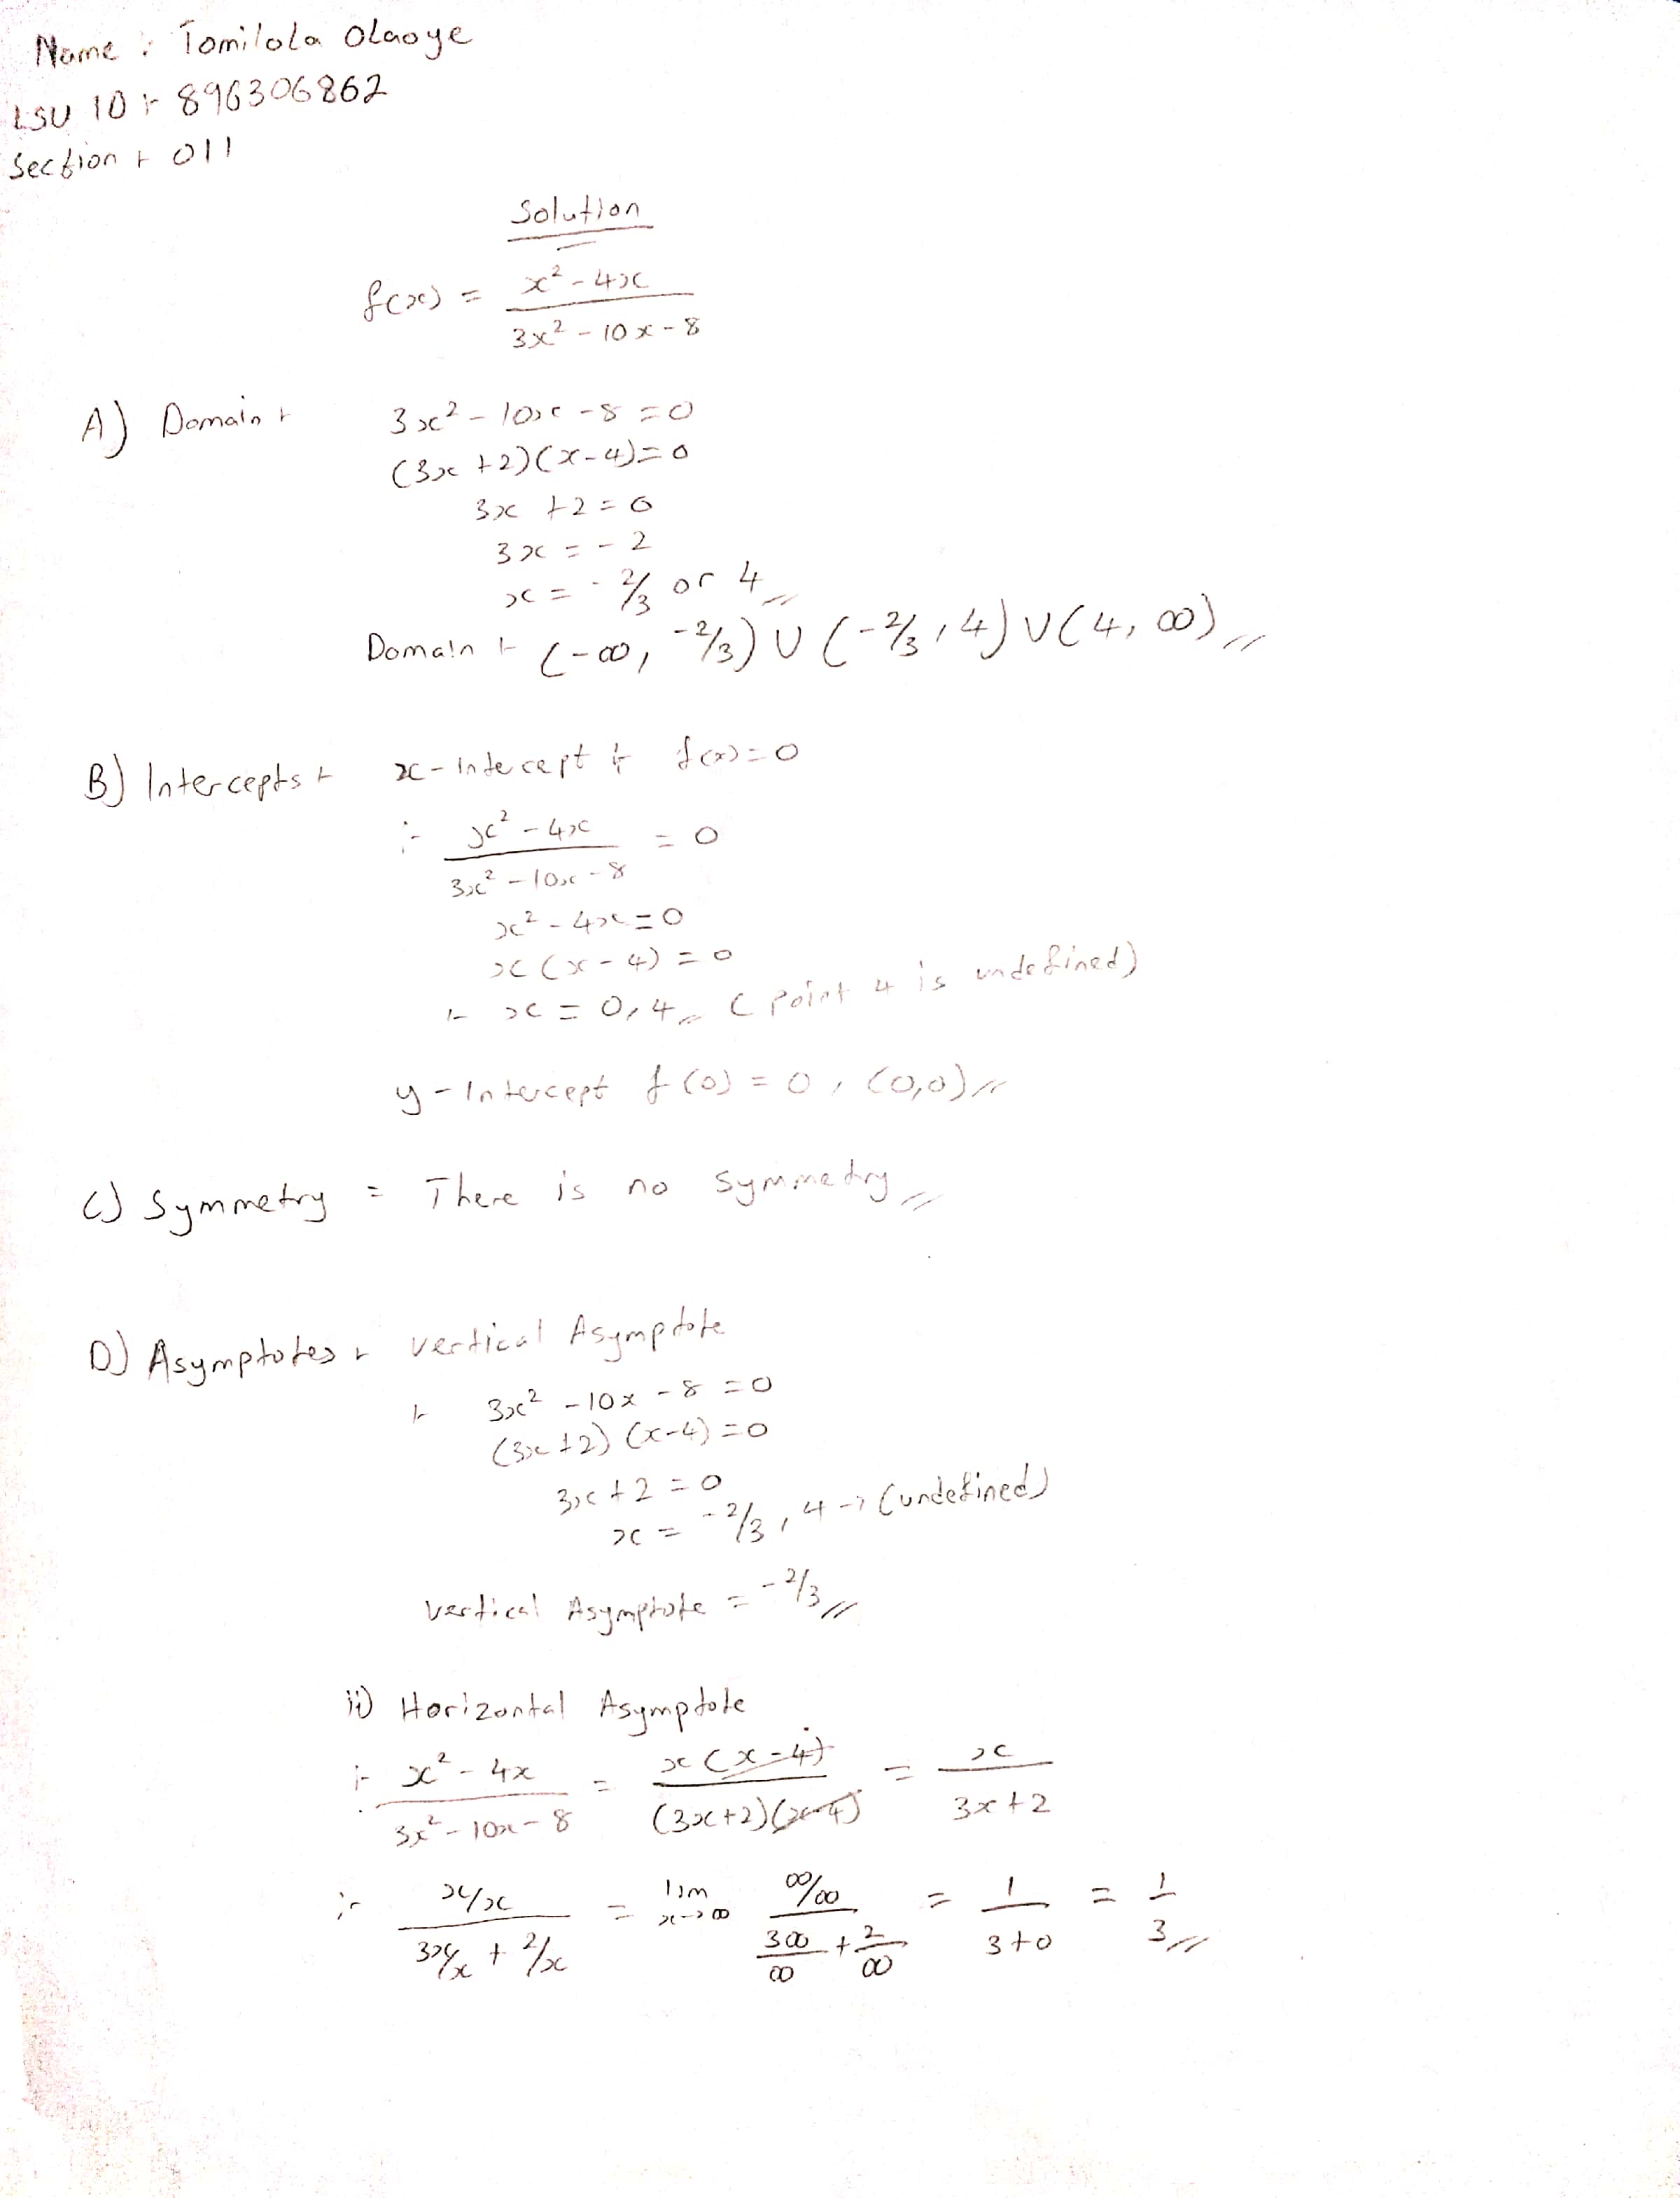 Name : Tomilola Olaoye
LSU ID :- 896306862
Section :- 011
Solution
f(x) = x² - 4x / 3x² - 10x - 8
A) Domain :- 3x² - 10x - 8 = 0
(3x + 2)(x - 4) = 0
3x + 2 = 0
3x = - 2
x = - 2/3 or 4 //
Domain :- (-∞, -2/3) U (-2/3, 4) U (4, ∞) //
B) Intercepts :- x-Intercept :- f(x) = 0
:- x² - 4x / 3x² - 10x - 8 = 0
x² - 4x = 0
x(x - 4) = 0
:- x = 0, 4 // (Point 4 is undefined)
y-Intercept f(0) = 0, (0,0) //
C) Symmetry = There is no symmetry //
D) Asymptotes :- Vertical Asymptote
:- 3x² - 10x - 8 = 0
(3x + 2)(x - 4) = 0
3x + 2 = 0
x = - 2/3, 4 -> (undefined)
Vertical Asymptote = - 2/3 //
ii) Horizontal Asymptote
:- x² - 4x / 3x² - 10x - 8 = x(x - 4) / (3x + 2)(x - 4) = x / 3x + 2
:- x/x / 3x/x + 2/x = lim x->∞ ∞/∞ / 3∞/∞ + 2/∞ = 1 / 3 + 0 = 1/3 //